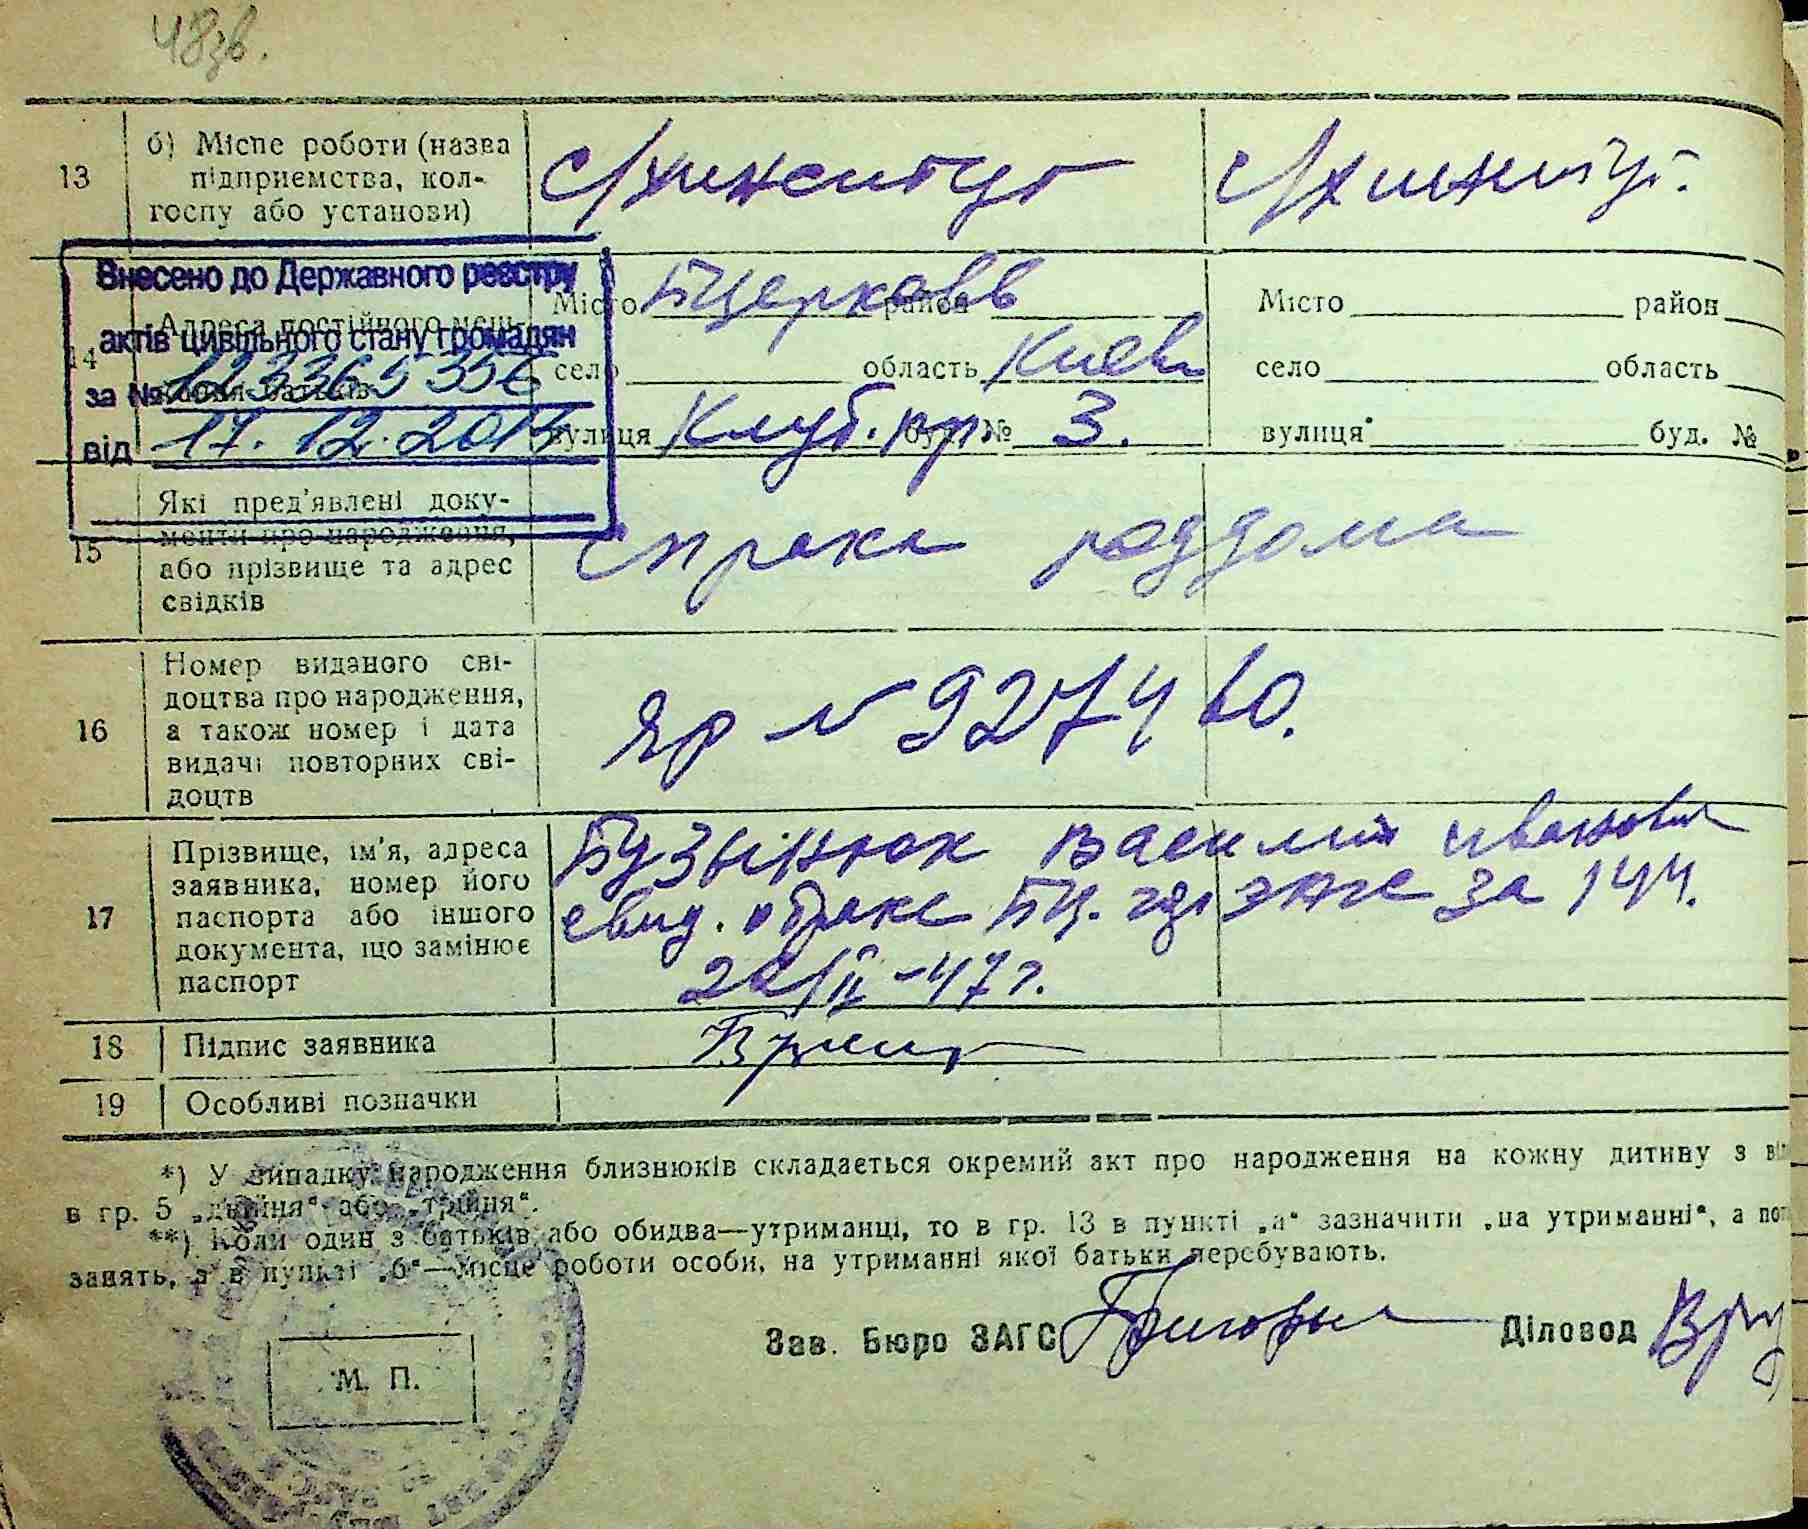 48зв.
13
б) Місце роботи (назва
підприємства, кол-
госпу або установи)
Внесено до Державного реєстру
актів цивільного стану громадян
за №
від 17.12.201
14
Адреса постійного меш-
Місто Бцерковь район
село область Киевс
вулиця Клуб. пр буд. № 3.
Місто район
село область
вулиця буд. №
15
Які пред'явлені доку-
менти про народження,
або прізвище та адрес
свідків
справка роддома
16
Номер виданого сві-
доцтва про народження,
а також номер і дата
видачі повторних сві-
доцтв
ЯР № 927460.
17
Прізвище, ім'я, адреса
заявника, номер його
паспорта або іншого
документа, що замінює
паспорт
Василий Иванович
свид. о браке БЦ. за 144.
-47 г.
18
Підпис заявника
19
Особливі позначки
*) У випадку народження близнюків складається окремий акт про народження на кожну дитину з ві
в гр. 5 „двійня“ або „трійня“.
**) Коли один з батьків або обидва—утриманці, то в гр. 13 в пункті „а“ зазначити „на утриманні“, а пот
занять, а в пункті „б“—місце роботи особи, на утриманні якої батьки перебувають.
Зав. Бюро ЗАГС Діловод
М. П.